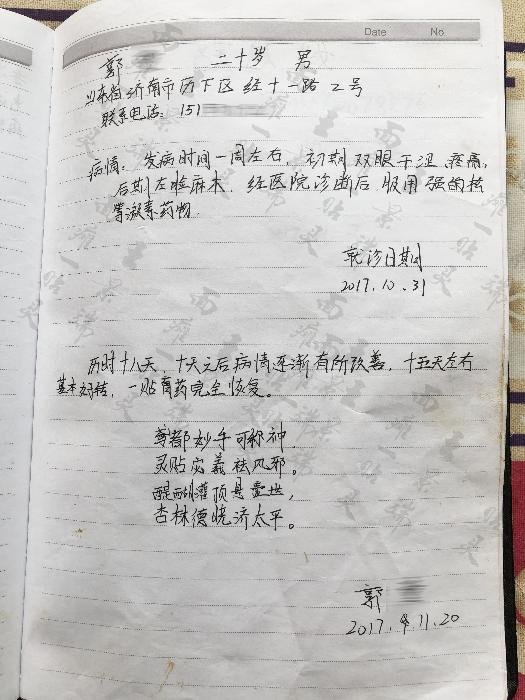 Date No.
郭 二十岁 男
山东省济南市历下区经十一路2号
联系电话: 151
病情: 发病时间一周左右, 初期双眼干涩、疼痛,
后期左脸麻木. 经医院诊断后 服用强的松
等激素药物
就诊日期
2017.10.31
历时十八天, 十天之后病情逐渐有所改善, 十五天左右
基本好转, 一贴膏药完全恢复。
妙手可称神,
灵贴 祛风邪。
醍醐灌顶悬壶世,
杏林德 济太平。
郭
2017.11.20